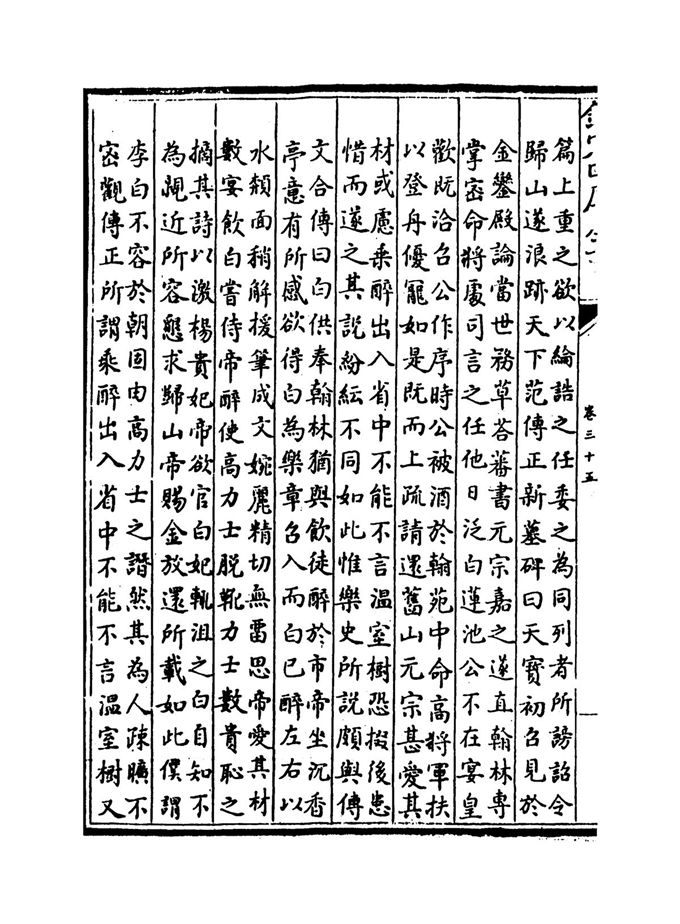 卷三十五
篇上重之欲以綸誥之任委之為同列者所謗詔令
歸山遂浪跡天下范傳正新墓碑曰天寳初召見於
金鑾殿論當世務草荅蕃書元宗嘉之遂直翰林專
掌密命將處司言之任他日泛白蓮池公不在宴皇
歡既洽召公作序時公被酒於翰苑中命高將軍扶
以登舟優寵如是既而上疏請還舊山元宗甚愛其
材或慮乗醉出入省中不能不言温室樹恐掇後患
惜而遂之其說紛紜不同如此惟樂史所說頗與傳
文合傳曰白供奉翰林猶與飲徒醉於市帝坐沉香
亭意有所感欲得白為樂章召入而白已醉左右以
水頮面稍解援筆成文婉麗精切無留思帝愛其材
數宴飲白嘗侍帝醉使高力士脫靴力士數貴恥之
摘其詩以激楊貴妃帝欲官白妃輒沮之白自知不
為親近所容懇求歸山帝賜金放還所載如此僕謂
李白不容於朝固由高力士之譖然其為人疎曠不
密觀傳正所謂乗醉出入省中不能不言温室樹又